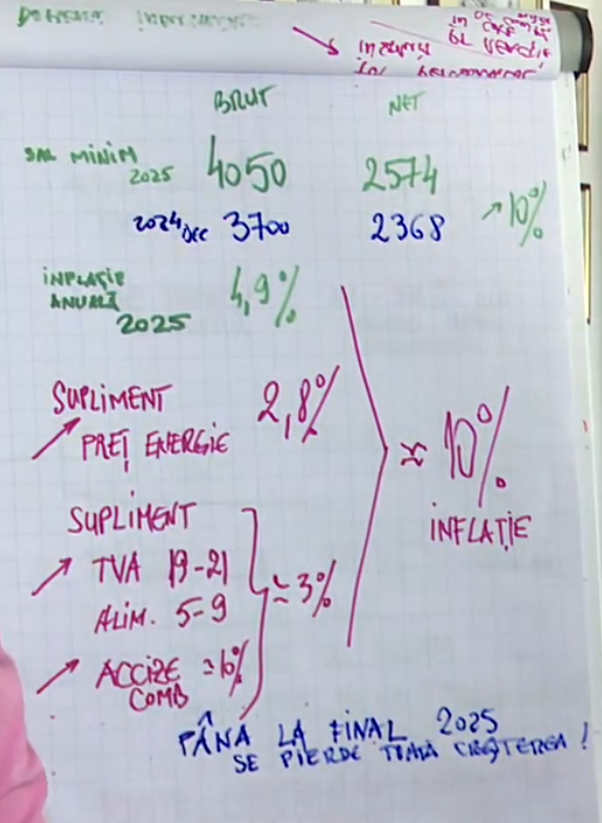 IN CARE
BL VERDE
BRUT NET
SAL MINIM
2025 4050 2574
2024 DEC 3700 2368 10%
INFLAȚIE
ANUALĂ 4,9%
2025
SUPLIMENT 2,8%
PREȚ ENERGIE
≈ 10%
INFLAȚIE
SUPLIMENT
TVA 19-21
ALIM. 5=9 ≈ 3%
ACCIZE ≈10%
COMB
PÂNA LA FINAL 2025
SE PIERDE TOATĂ CREȘTEREA !